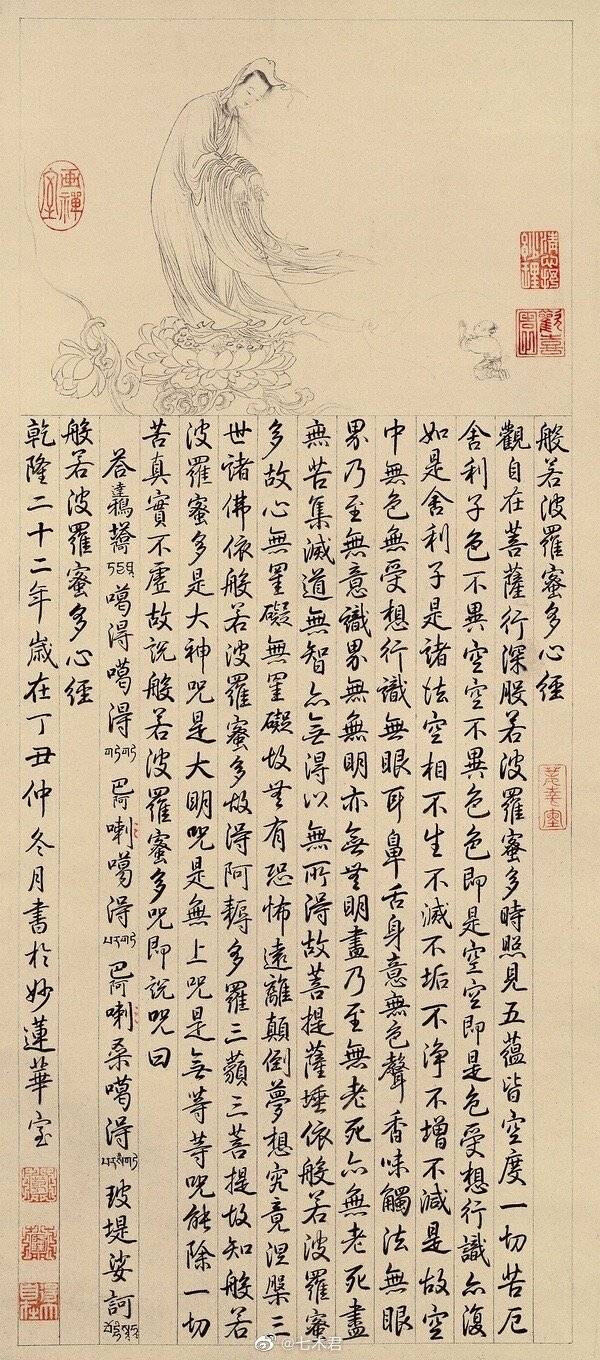 般若波羅蜜多心經
觀自在菩薩行深般若波羅蜜多時照見五蘊皆空度一切苦厄
舍利子色不異空空不異色色即是空空即是色受想行識亦復
如是舍利子是諸法空相不生不滅不垢不淨不增不減是故空
中無色無受想行識無眼耳鼻舌身意無色聲香味觸法無眼
界乃至無意識界無無明亦無無明盡乃至無老死亦無老死盡
無苦集滅道無智亦無得以無所得故菩提薩埵依般若波羅蜜
多故心無罣礙無罣礙故無有恐怖遠離顛倒夢想究竟涅槃三
世諸佛依般若波羅蜜多故得阿耨多羅三藐三菩提故知般若
波羅蜜多是大神咒是大明咒是無上咒是無等等咒能除一切
苦真實不虛故說般若波羅蜜多咒即說咒曰
答達鴉噶得噶得巴阿喇噶得巴阿喇桑噶得玻堤娑訶
般若波羅蜜多心經
乾隆二十二年歲在丁丑仲冬月書於妙蓮華室
畫禪室
歡喜園
@七木君